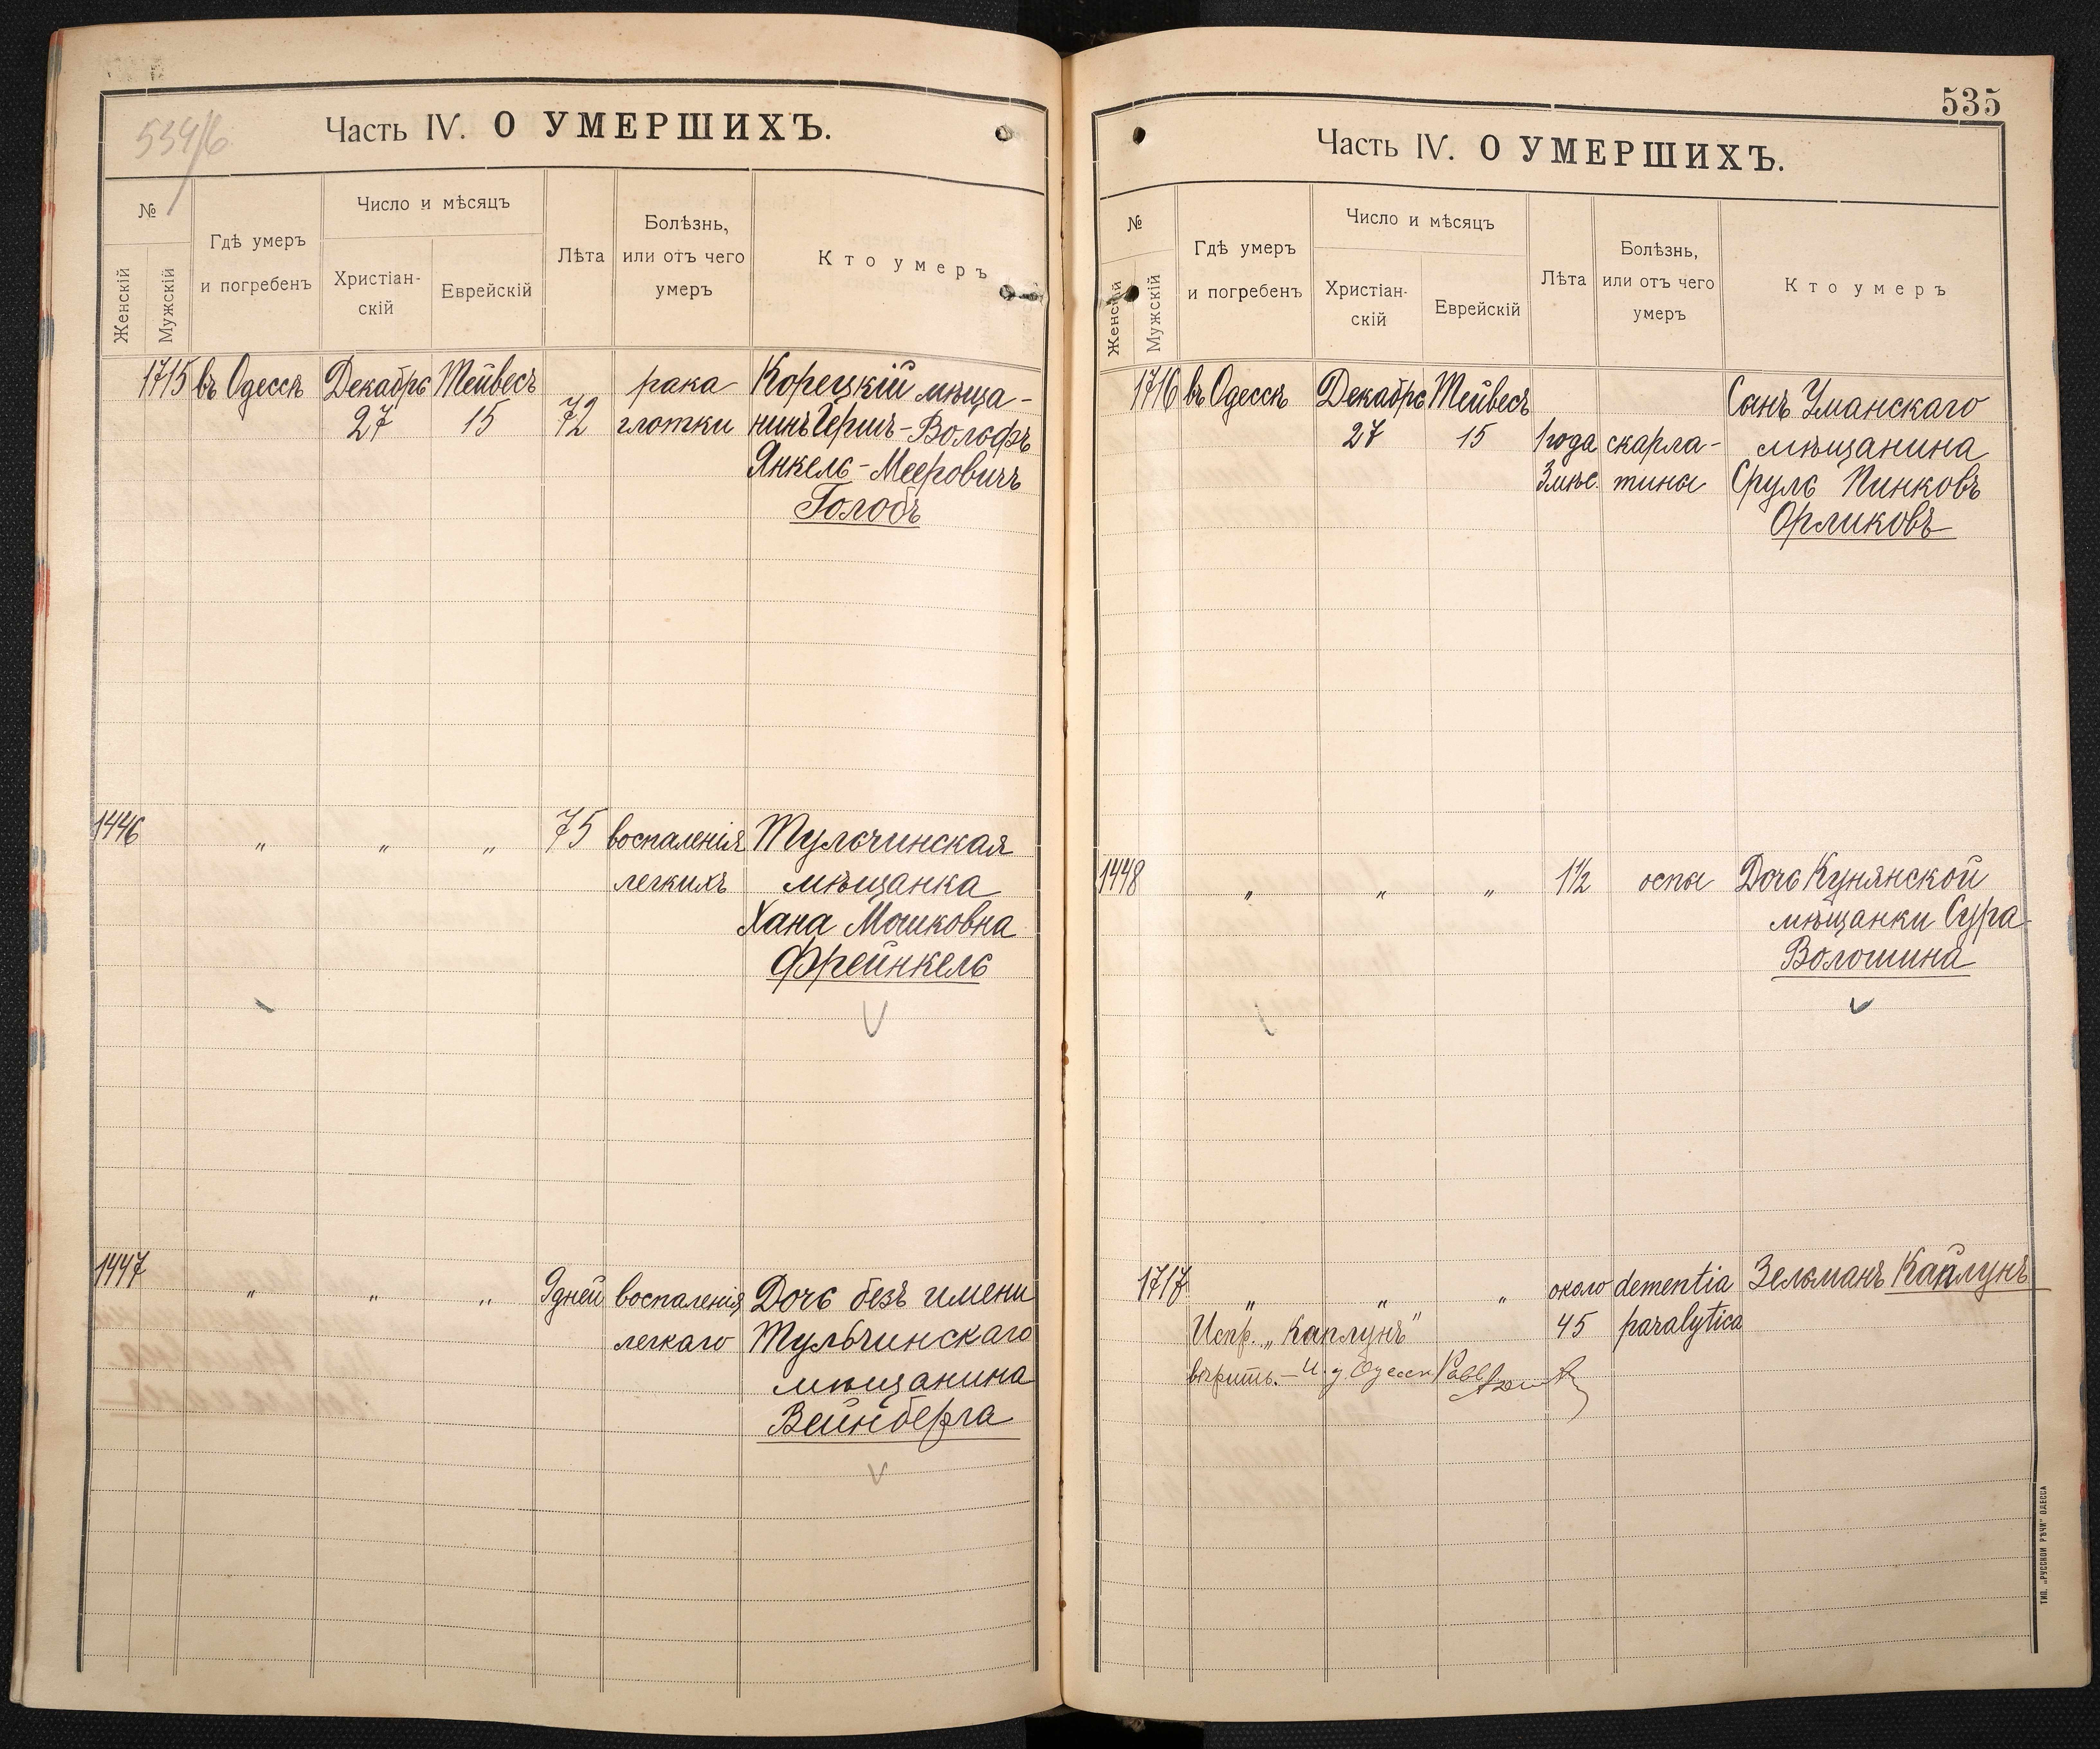 534/б
Часть IV. О УМЕРШИХЪ.
№
Женскій
Мужскій
Гдѣ умеръ
и погребенъ
Число и мѣсяцъ
Христіан-
скій
Еврейскій
Лѣта
Болѣзнь,
или отъ чего
умеръ
Кто умеръ
1715 въ Одессѣ Декабрь Тейвесъ рака Корецкій мѣща-
27 15 72 глотки нинъ Гершъ-Вольфъ
Янкель-Мееровичъ
Голобъ
1446 " " " 75 воспаленія Тульчинская
легкихъ мѣщанка
Хана Мошковна
Френкель
1447 " " " 9 дней воспаленія Дочь безъ имени
легкаго Тульчинскаго
мѣщанина
Вейнберга
535
Часть IV. О УМЕРШИХЪ.
№
Женскій
Мужскій
Гдѣ умеръ
и погребенъ
Число и мѣсяцъ
Христіан-
скій
Еврейскій
Лѣта
Болѣзнь,
или отъ чего
умеръ
Кто умеръ
1716 въ Одессѣ Декабрь Тейвесъ Сынъ Уманскаго
27 15 1 года скарла- мѣщанина
3 мѣс. тины Сруль Пинковъ
Орликовъ
1448 " " " 1½ оспы Дочь Кунянской
мѣщанки Сура
Волошина
1717 " " " около dementia Зельманъ Каплунъ
Испр. „Каплунъ" 45 paralytica
вѣрить. – И. д. Одесск Равв
ТИП. „РУССКОЙ РѢЧИ" ОДЕССА